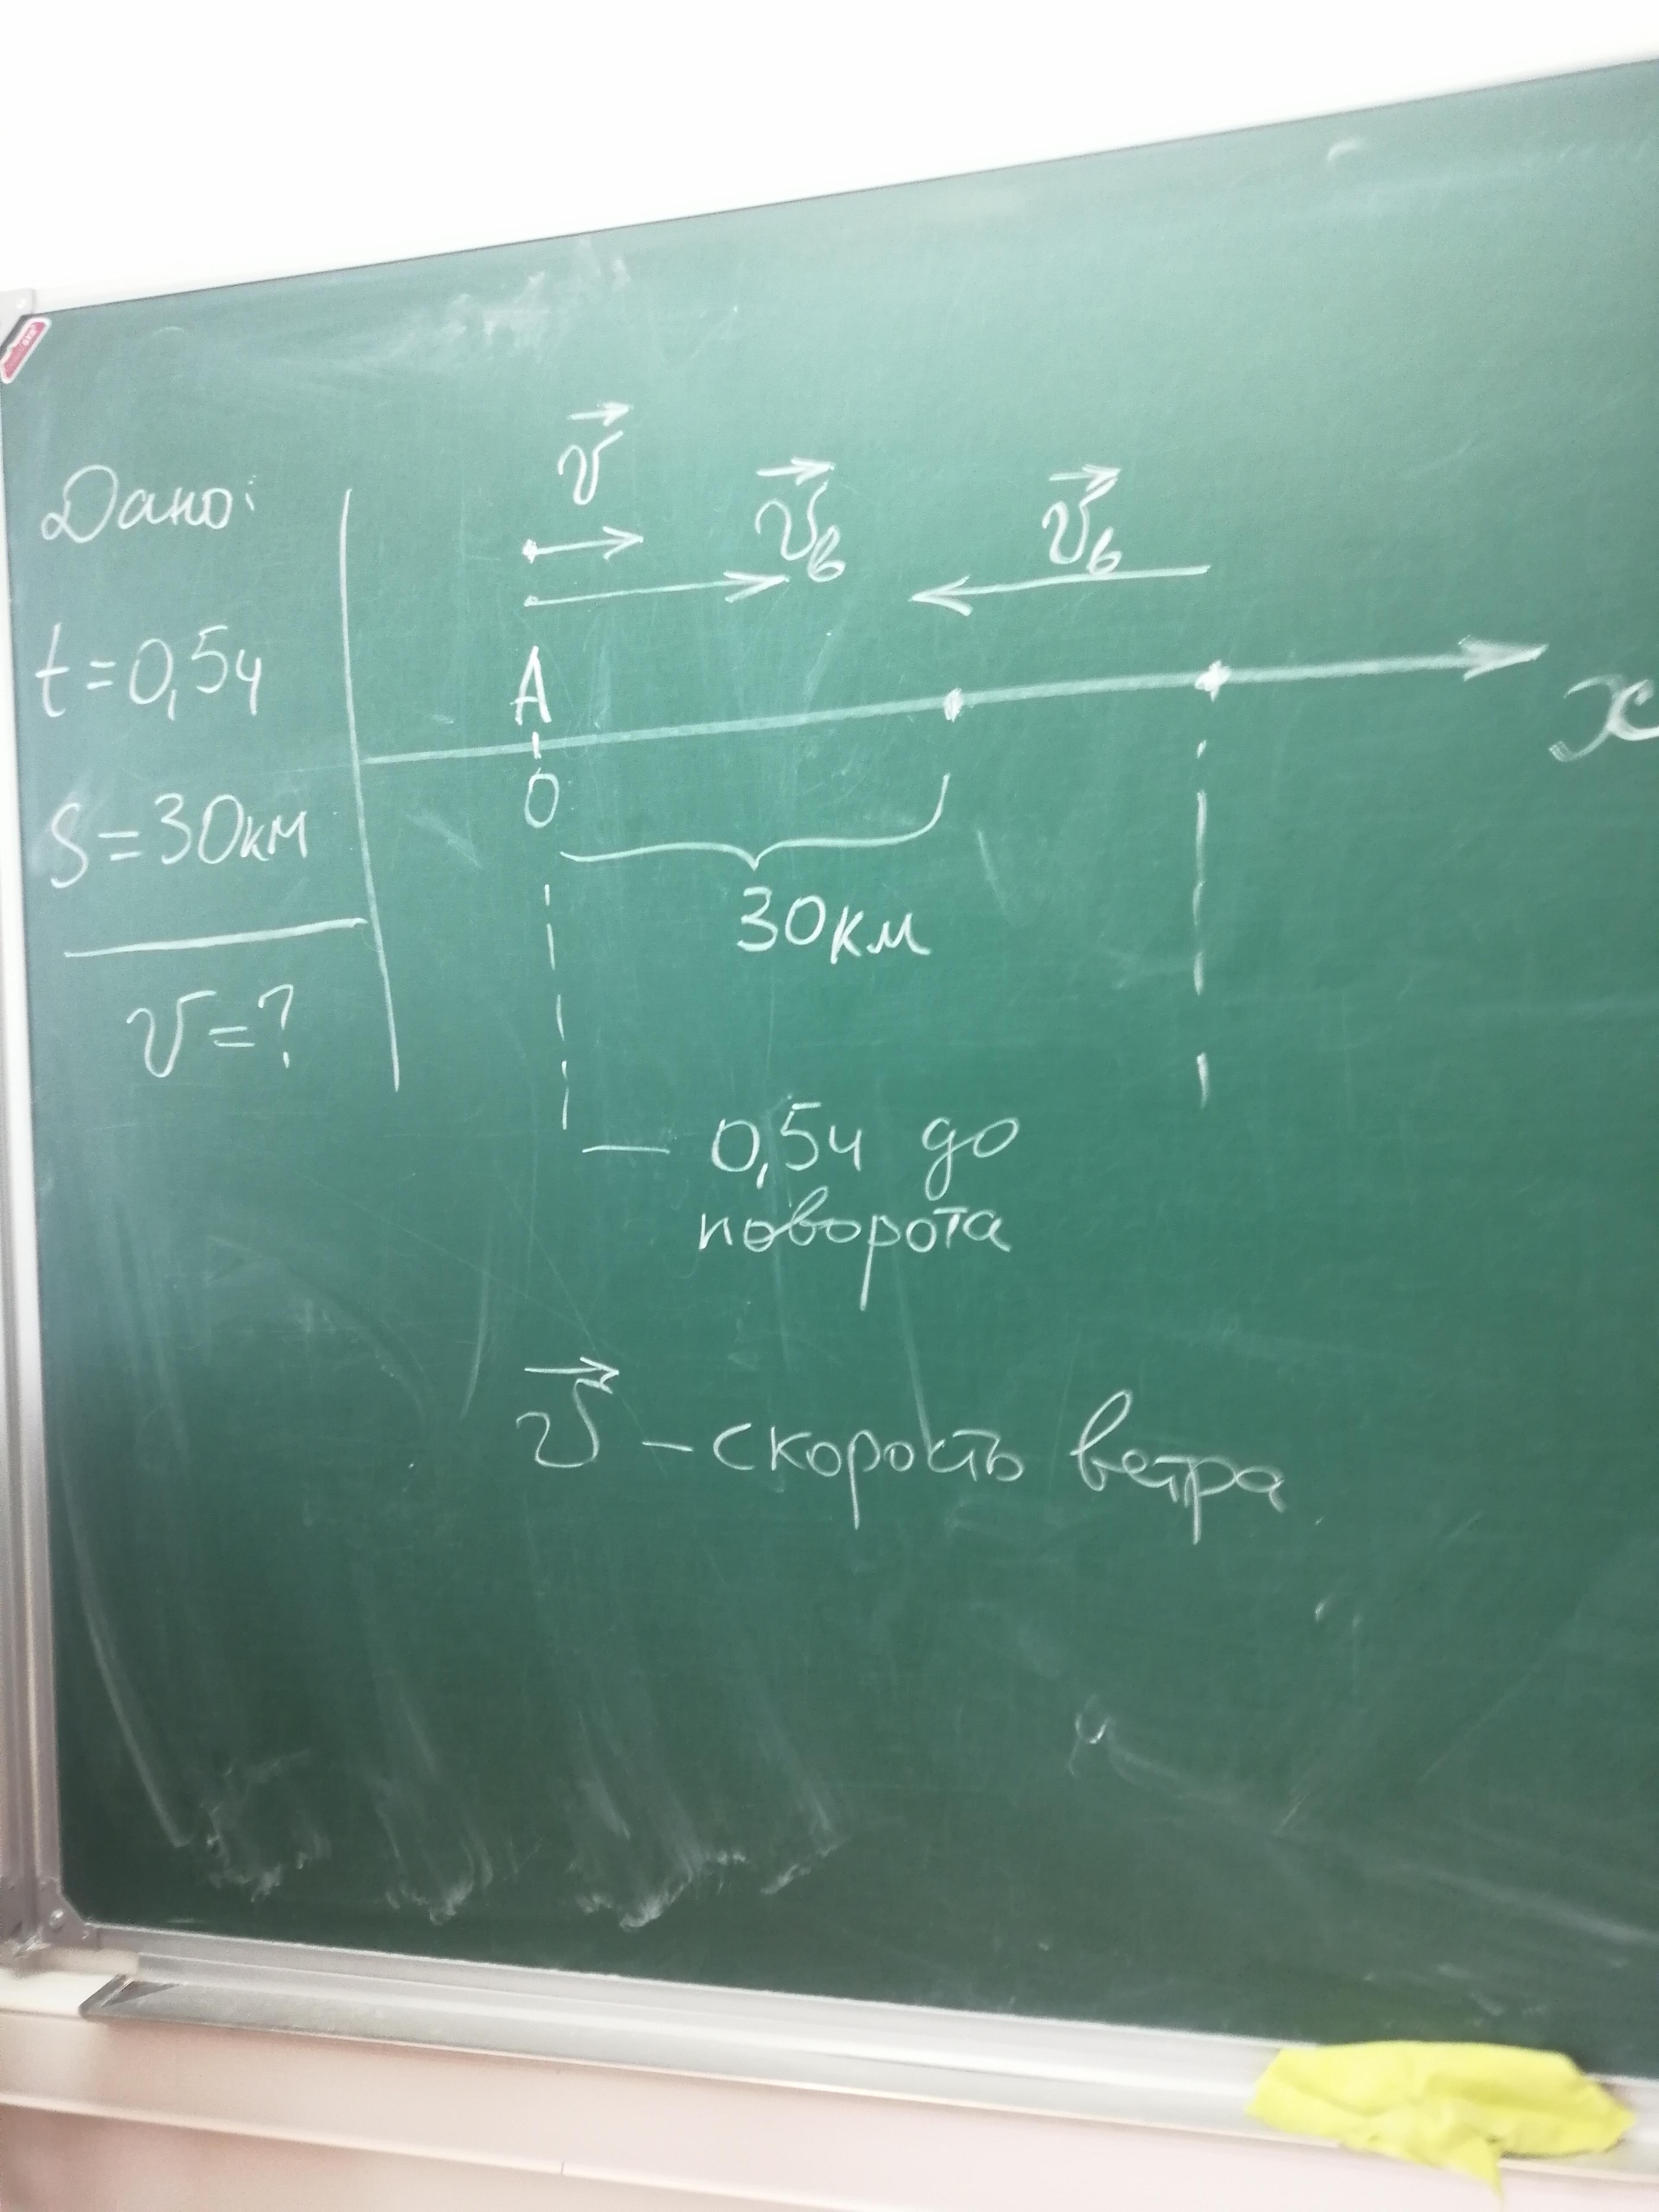 Дано:
t=0,5ч
S=30км
v=?
v
vв
vв
A
0
x
30км
— 0,5ч до
поворота
v – скорость ветра